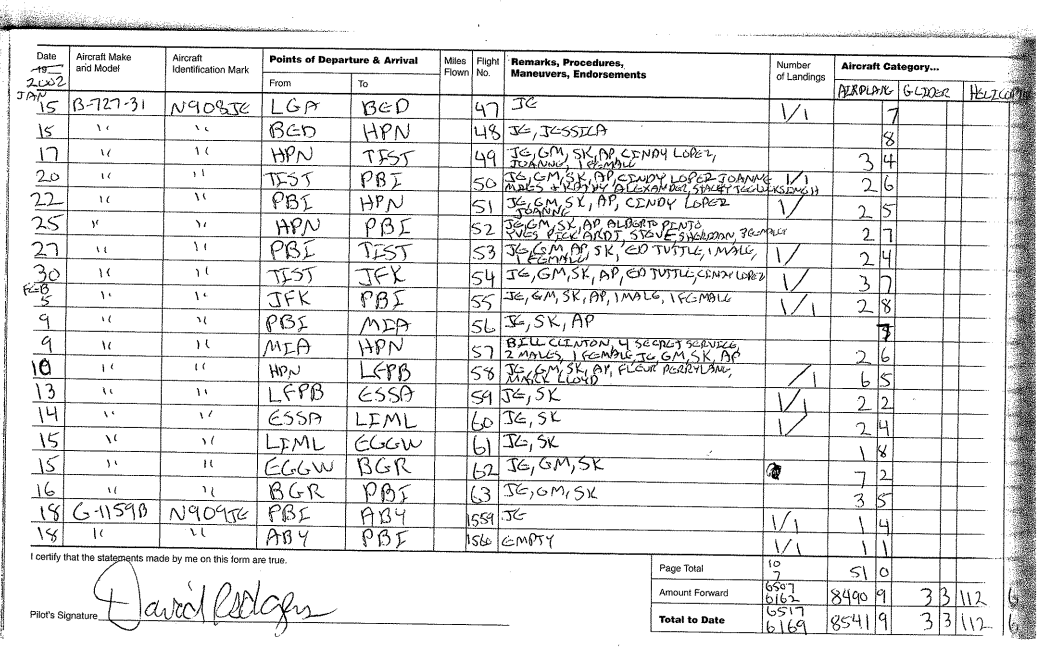 Date Aircraft Make and Model Aircraft Identification Mark Points of Departure & Arrival Miles Flown Flight No. Remarks, Procedures, Maneuvers, Endorsements Number of Landings Aircraft Category...
19 2002 From To AIRPLANE GLIDER HELICOPTE
JAN 15 B-727-31 N908JE LGA BED 47 JE 1/1 7
15 " " BED HPN 48 JE, JESSICA 8
17 " " HPN TIST 49 JE, GM, SK, AP, CINDY LOPEZ, JOANNE, 1 FEMALE 3 4
20 " " TIST PBI 50 JE, GM, SK, AP, CINDY LOPEZ JOANNE 1/1 2 6
ALEXANDER,
22 " " PBI HPN 51 JE, GM, SK, AP, CINDY LOPEZ JOANNE 1/ 2 5
25 " " HPN PBI 52 JE, GM, SK, AP ALBERTO PINTO 2 7
YVES PICKARDT, STEVE
27 " " PBI TIST 53 JE, GM, AP, SK, ED TUTTLE, 1 MALE, 1 FEMALE 1/ 2 4
30 " " TIST JFK 54 JE, GM, SK, AP, ED TUTTLE, CINDY LOPEZ 1/ 3 7
FEB 5 " " JFK PBI 55 JE, GM, SK, AP, 1 MALE, 1 FEMALE 1/1 2 8
9 " " PBI MIA 56 JE, SK, AP
9 " " MIA HPN 57 BILL CLINTON, 4 SECRET SERVICE, 2 MALES, 1 FEMALE, JE, GM, SK, AP 2 6
10 " " HPN LFPB 58 JE, GM, SK, AP, FLEUR PERRYLANG, MARK LLOYD /1 6 5
13 " " LFPB ESSA 59 JE, SK 1/1 2 2
14 " " ESSA LIML 60 JE, SK 1/ 2 4
15 " " LIML EGGW 61 JE, SK 1 8
15 " " EGGW BGR 62 JE, GM, SK 7 2
16 " " BGR PBI 63 JE, GM, SK 3 5
18 G-1159B N909JE PBI ABY 1559 JE 1/1 1 4
18 " " ABY PBI 1560 EMPTY 1/1 1 1
I certify that the statements made by me on this form are true.
Page Total 10 7 51 0
Amount Forward 6507 6162 8490 9 3 3 112 6
Pilot's Signature David Rodgers
Total to Date 6517 6169 8541 9 3 3 112 6